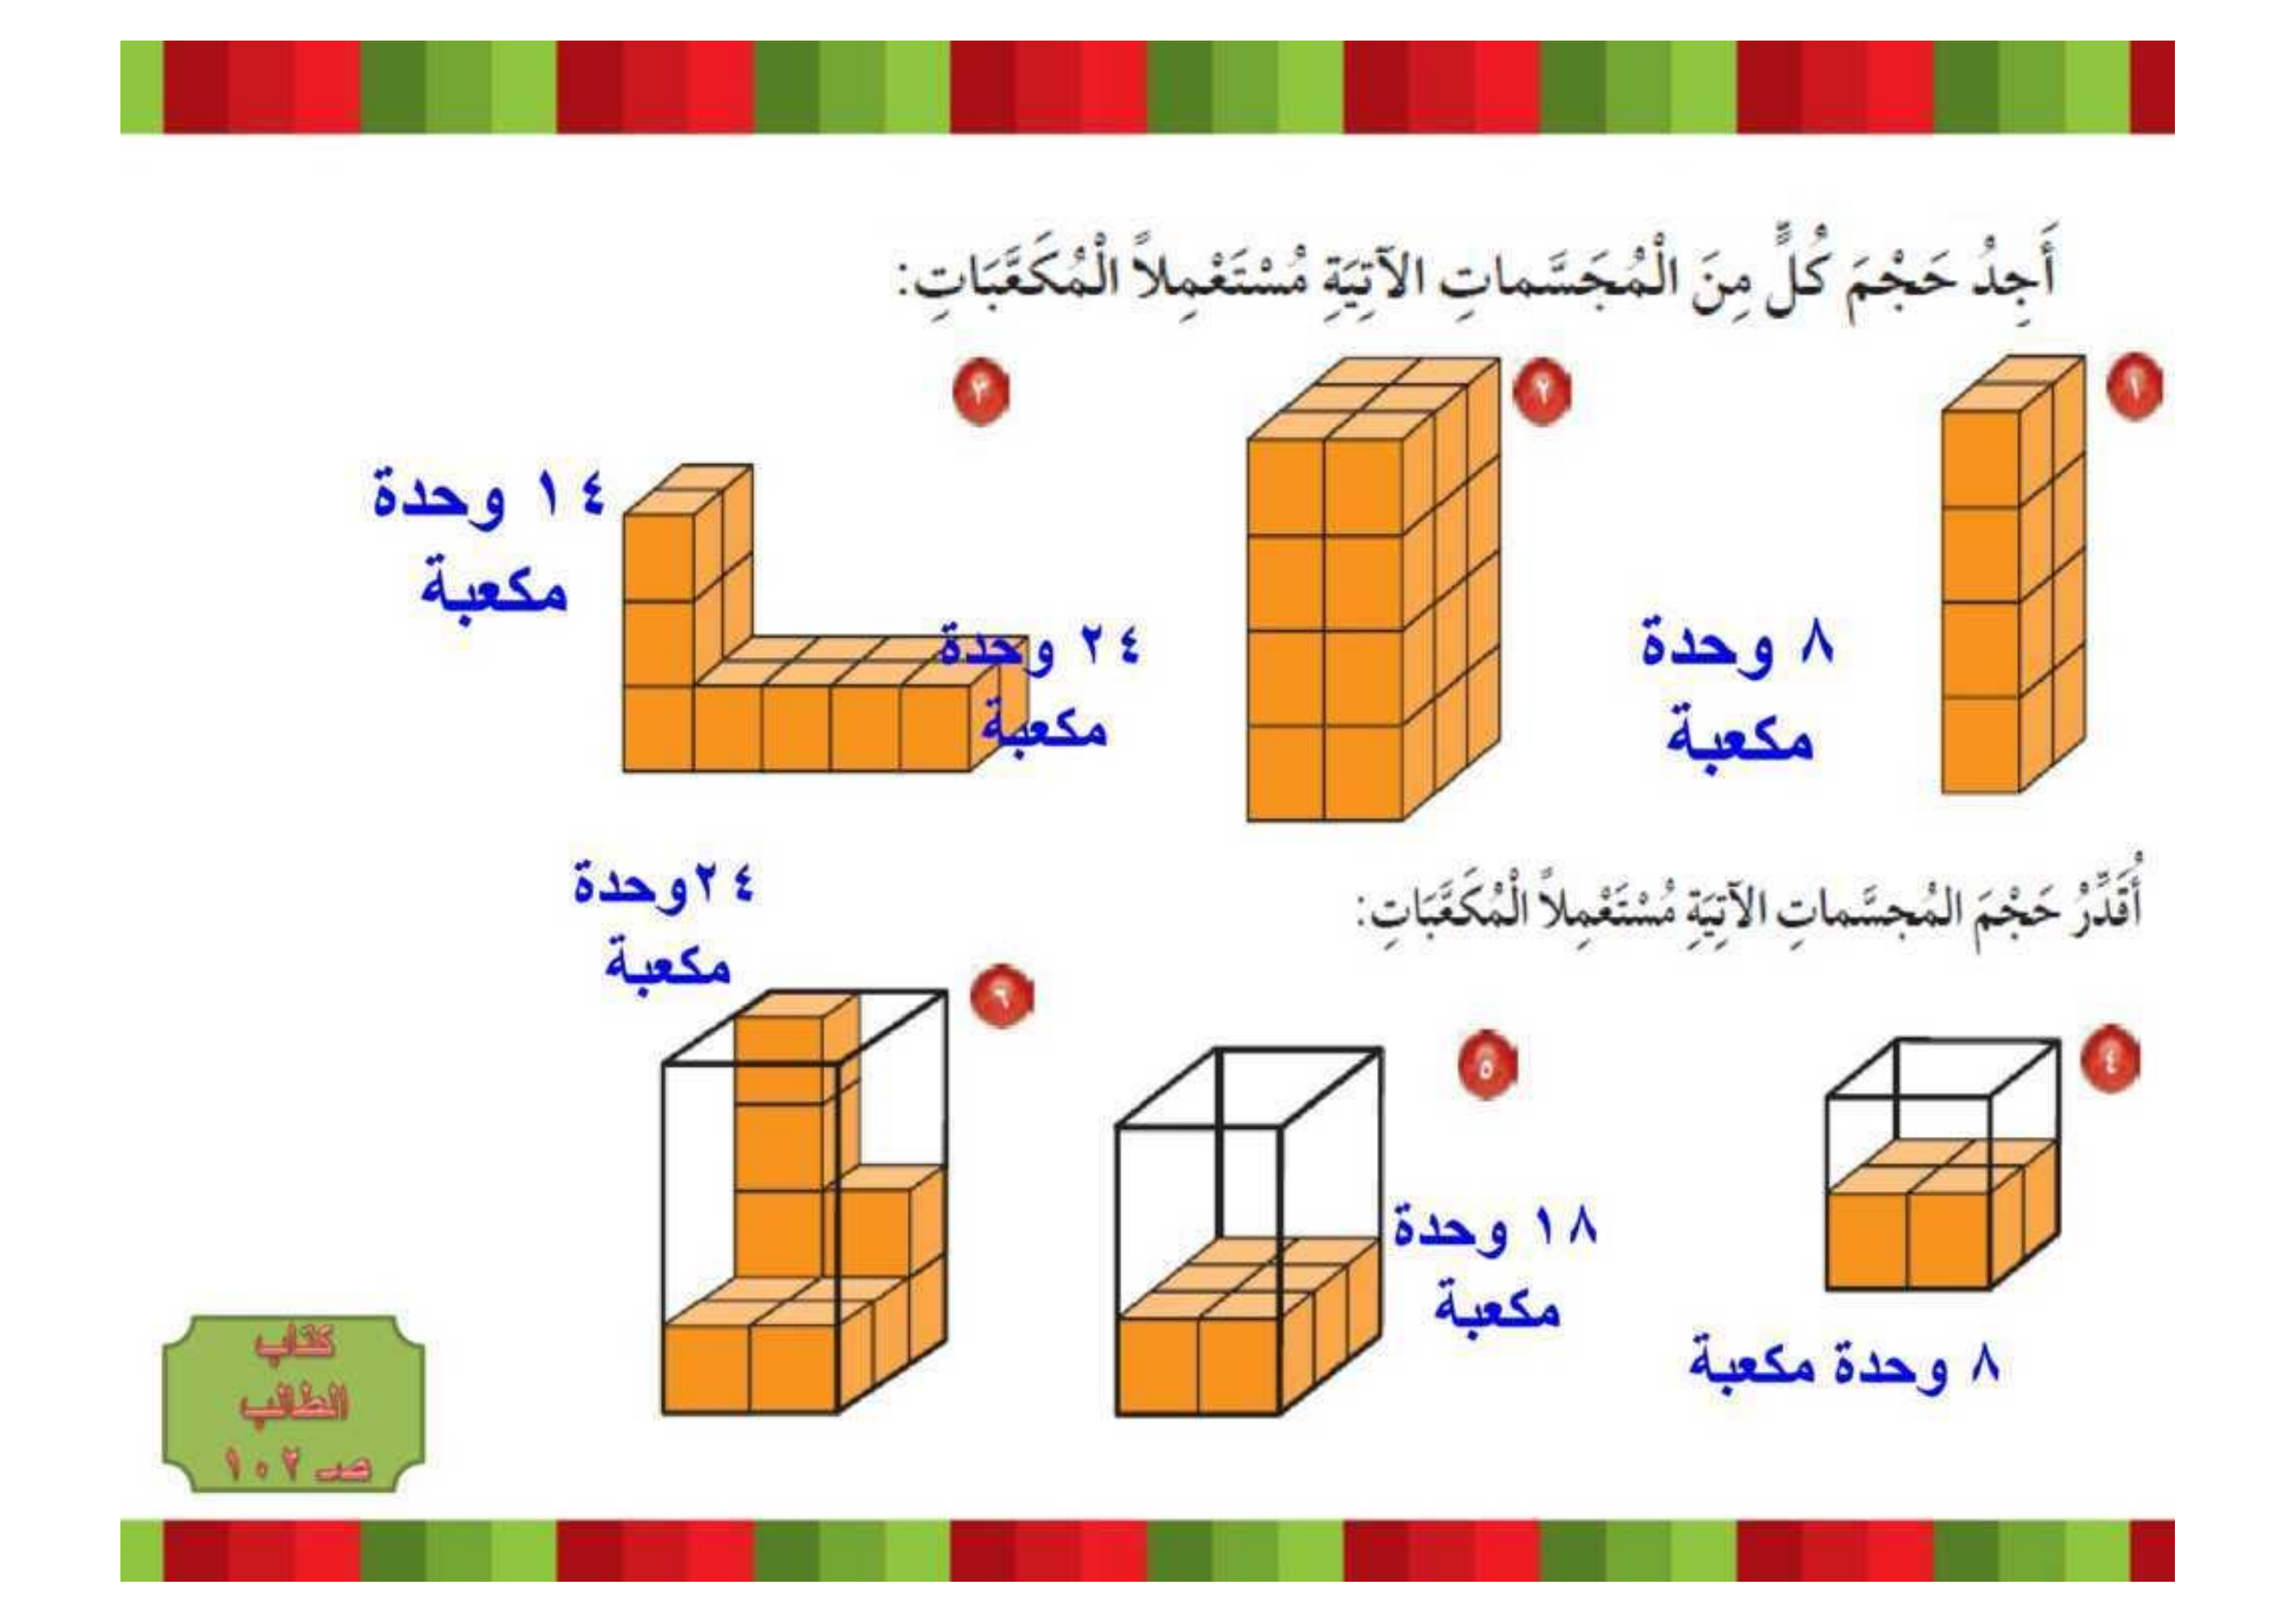 أَجِدُ حَجْمَ كُلٍّ مِنَ الْمُجَسَّماتِ الآتِيَةِ مُسْتَعْمِلاً الْمُكَعَّبَاتِ:
١
٨ وحدة
مكعبة
٢
٢٤ وحدة
مكعبة
٣
١٤ وحدة
مكعبة
أُقَدِّرُ حَجْمَ المُجسَّماتِ الآتِيَةِ مُسْتَعْمِلاً الْمُكَعَّبَاتِ:
٤
٨ وحدة مكعبة
٥
١٨ وحدة
مكعبة
٦
٢٤وحدة
مكعبة
كتاب
الطالب
صـ ١٠٢